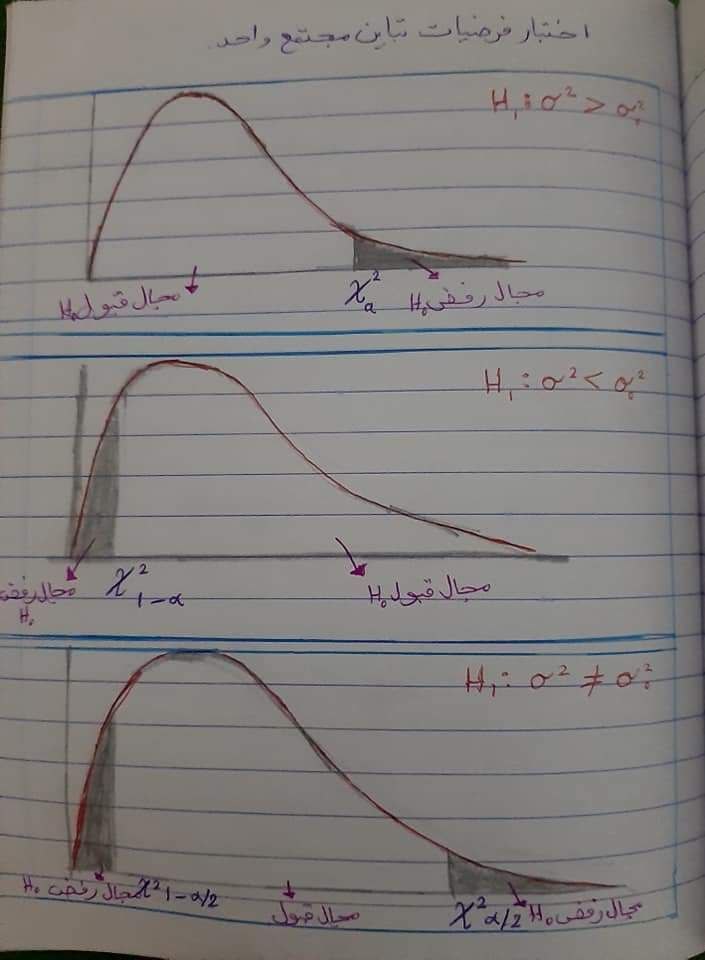 اختبار فرضيات تباين مجتمع واحد
H₁: σ² > σ₀²
مجال قبول H₀
χ²α
مجال رفض H₀
H₁: σ² < σ₀²
مجال رفض
H₀
χ²1-α
مجال قبول H₀
H₁: σ² ≠ σ₀²
مجال رفض H₀
χ²1-α/2
مجال قبول
χ²α/2
مجال رفض H₀